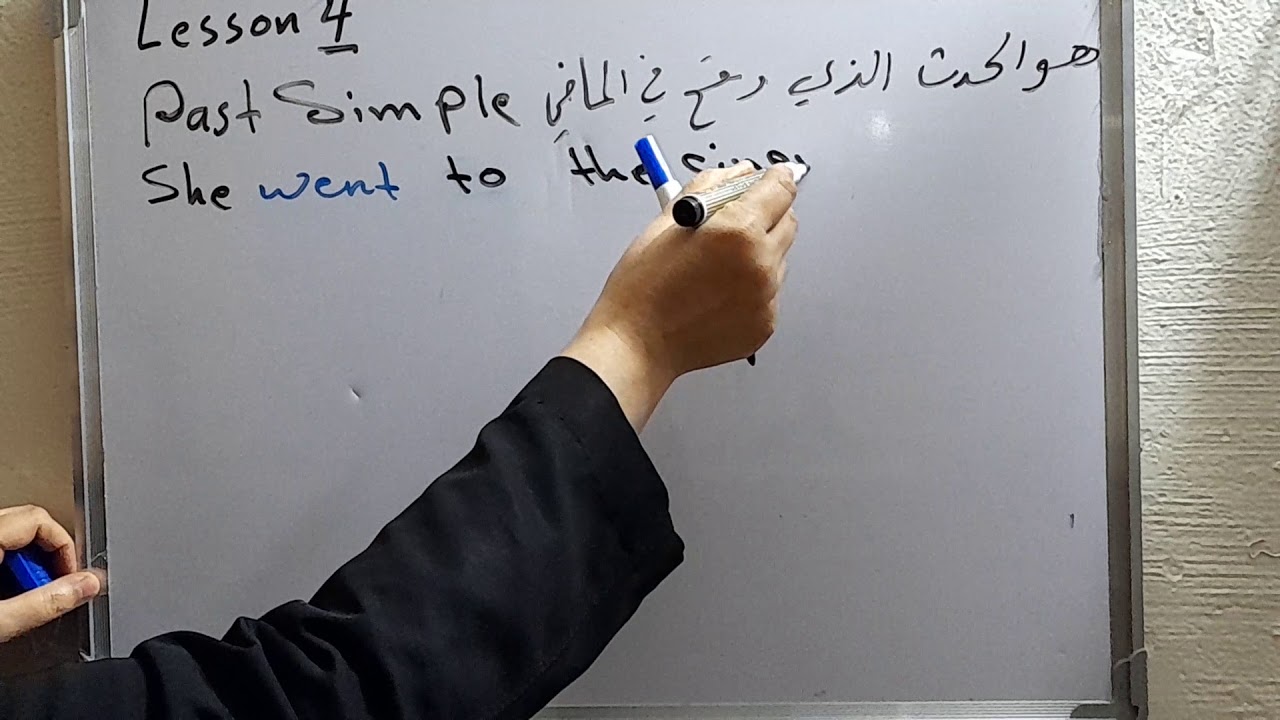 Lesson 4
Past Simple هو الحدث الذي وقع في الماضي
She went to the